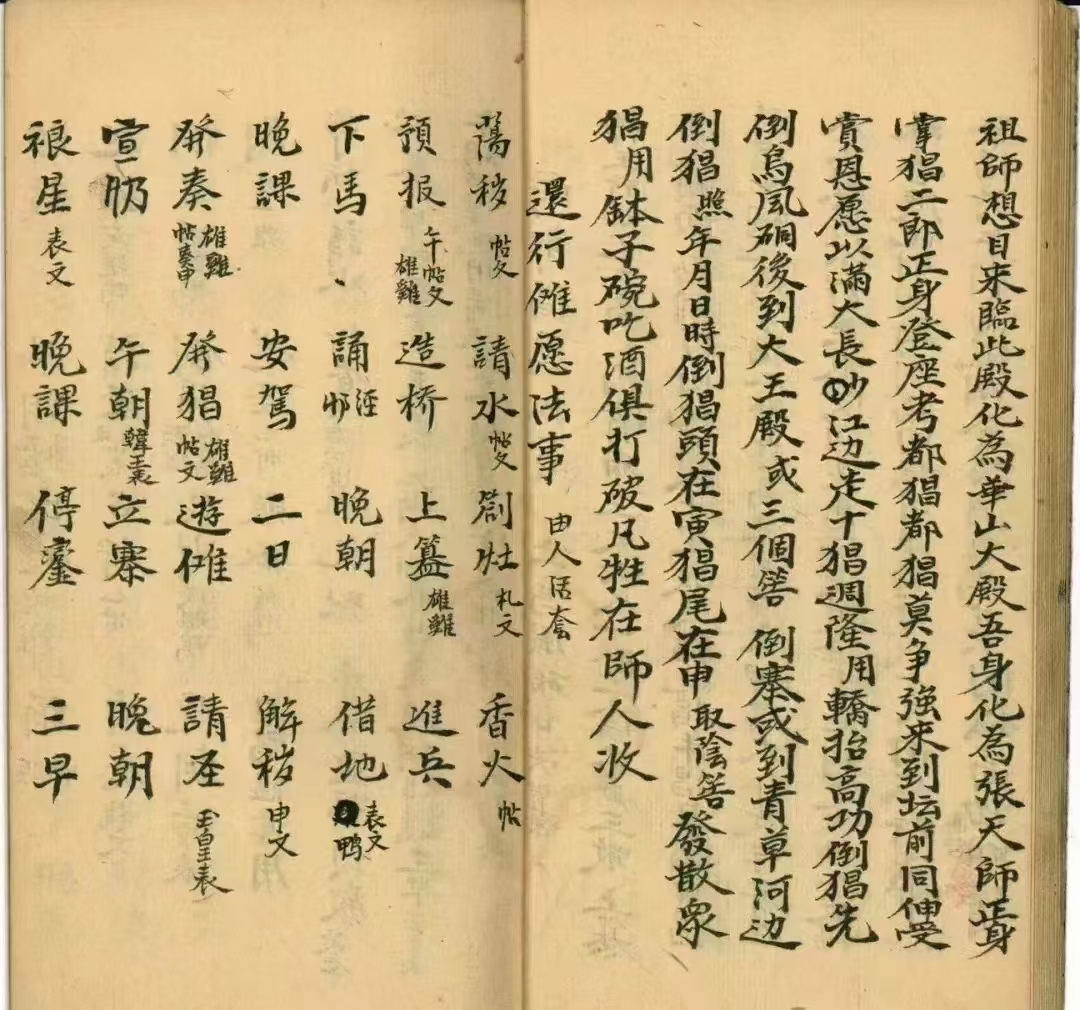 祖師想目来臨此殿化為華山大殿吾身化為張天師正身
掌猖二郎正身登座考都猖都猖莫争強来到坛前同伸受
賞恩愿以滿大長江边走十猖週隆用轎抬高功倒猖先
倒烏風硐後到大王殿或三個筶倒寨或到青草河边
倒猖照年月日時倒猖頭在寅猖尾在申取陰筶發散衆
猖用缽子碗吃酒俱打破凡牲在師人收
還行傩愿法事 由人活套
蕩秽帖文 請水帖文 劄灶札文 香火帖
預报午帖文雄雞 造桥 上簋雄雞 進兵
下馬 誦经 晚朝 借地表文鸭
晚課 安駕 二日 解秽申文
發奏雄雞帖奏申 發猖雄雞帖文 遊傩 請圣玉皇表
宣 午朝 立寨 晚朝
禳星表文 晚課 停鑾 三早